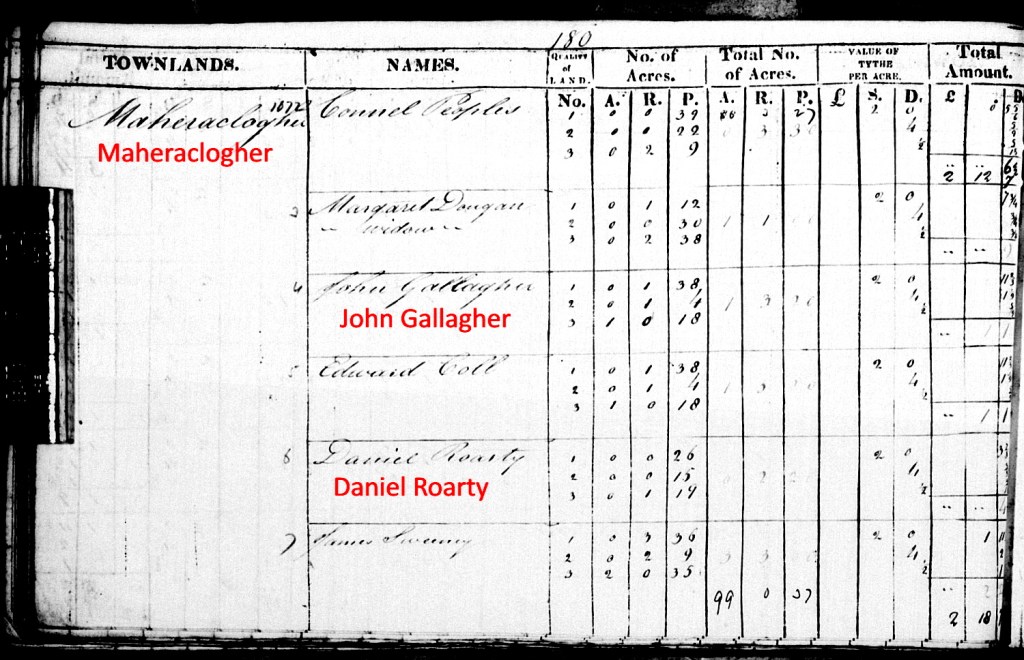 180
TOWNLANDS. NAMES. QUALITY of LAND. No. of Acres. Total No. of Acres. VALUE OF TYTHE PER ACRE. Total Amount.
No. A. R. P. A. R. P. £ S. D. £ D.
Maheraclogher Connel Peoples 1 0 0 39 3 27 2 0
2 0 0 22 0 3 4
Maheraclogher 3 0 2 9 ½
2 12
3 Margaret Dougan 1 0 1 12 2 0
widow 2 0 0 30 1 1 4
3 0 2 38 ½
4 John Gallagher 1 0 1 38 2 0
2 0 1 4 1 3 20 4
John Gallagher 3 1 0 18 ½
1 1
5 Edward Coll 1 0 1 38 2 0
2 0 1 4 1 3 20 4
3 1 0 18 ½
1 1
6 Daniel Roarty 1 0 0 26 2 0
2 0 0 15 0 2 20 4
Daniel Roarty 3 0 1 19 ½
7 James Sweeny 1 0 3 36 2 0 1
2 0 2 9 3 3 4
3 2 0 35 ½
99 0 37
2 18